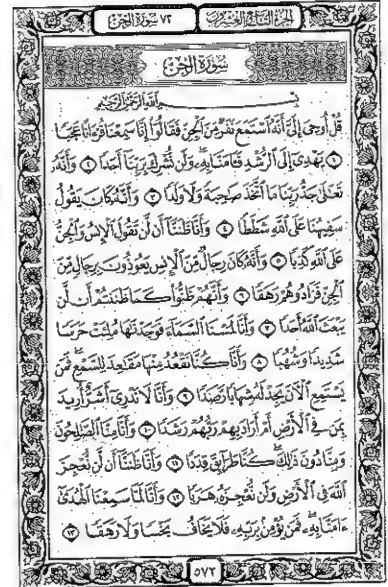 الجزء التاسع والعشرون ٧٢ سورة الجن
سورة الجن
بسم الله الرحمن الرحيم
قُلْ أُوحِيَ إِلَيَّ أَنَّهُ اسْتَمَعَ نَفَرٌ مِّنَ الْجِنِّ فَقَالُوا إِنَّا سَمِعْنَا قُرْءَانًا عَجَبًا
١ يَهْدِي إِلَى الرُّشْدِ فَـَٔامَنَّا بِهِ وَلَن نُّشْرِكَ بِرَبِّنَا أَحَدًا ٢ وَأَنَّهُ
تَعَٰلَىٰ جَدُّ رَبِّنَا مَا اتَّخَذَ صَٰحِبَةً وَلَا وَلَدًا ٣ وَأَنَّهُ كَانَ يَقُولُ
سَفِيهُنَا عَلَى اللَّهِ شَطَطًا ٤ وَأَنَّا ظَنَنَّا أَن لَّن تَقُولَ الْإِنسُ وَالْجِنُّ
عَلَى اللَّهِ كَذِبًا ٥ وَأَنَّهُ كَانَ رِجَالٌ مِّنَ الْإِنسِ يَعُوذُونَ بِرِجَالٍ مِّنَ
الْجِنِّ فَزَادُوهُمْ رَهَقًا ٦ وَأَنَّهُمْ ظَنُّوا كَمَا ظَنَنتُمْ أَن لَّن
يَبْعَثَ اللَّهُ أَحَدًا ٧ وَأَنَّا لَمَسْنَا السَّمَاءَ فَوَجَدْنَٰهَا مُلِئَتْ حَرَسًا
شَدِيدًا وَشُهُبًا ٨ وَأَنَّا كُنَّا نَقْعُدُ مِنْهَا مَقَٰعِدَ لِلسَّمْعِ فَمَن
يَسْتَمِعِ الْآنَ يَجِدْ لَهُ شِهَابًا رَّصَدًا ٩ وَأَنَّا لَا نَدْرِي أَشَرٌّ أُرِيدَ
بِمَن فِي الْأَرْضِ أَمْ أَرَادَ بِهِمْ رَبُّهُمْ رَشَدًا ١٠ وَأَنَّا مِنَّا الصَّٰلِحُونَ
وَمِنَّا دُونَ ذَٰلِكَ كُنَّا طَرَائِقَ قِدَدًا ١١ وَأَنَّا ظَنَنَّا أَن لَّن نُّعْجِزَ
اللَّهَ فِي الْأَرْضِ وَلَن نُّعْجِزَهُ هَرَبًا ١٢ وَأَنَّا لَمَّا سَمِعْنَا الْهُدَىٰ
ءَامَنَّا بِهِ فَمَن يُؤْمِن بِرَبِّهِ فَلَا يَخَافُ بَخْسًا وَلَا رَهَقًا ١٣
٥٧٢